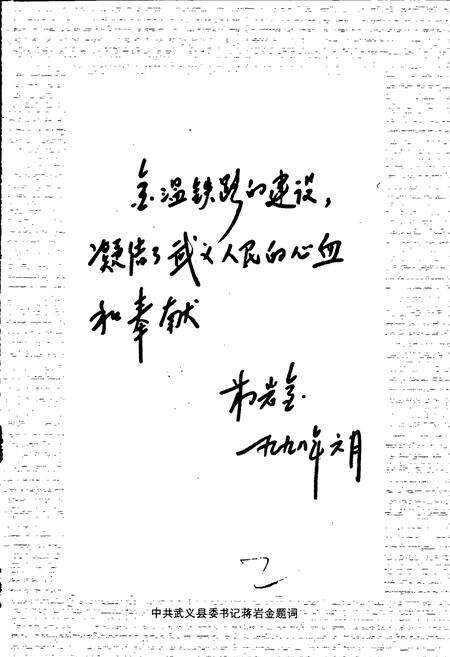 金温铁路的建设,
凝结了武义人民的心血
和奉献
蒋岩金
一九九八年六月
中共武义县委书记蒋岩金题词